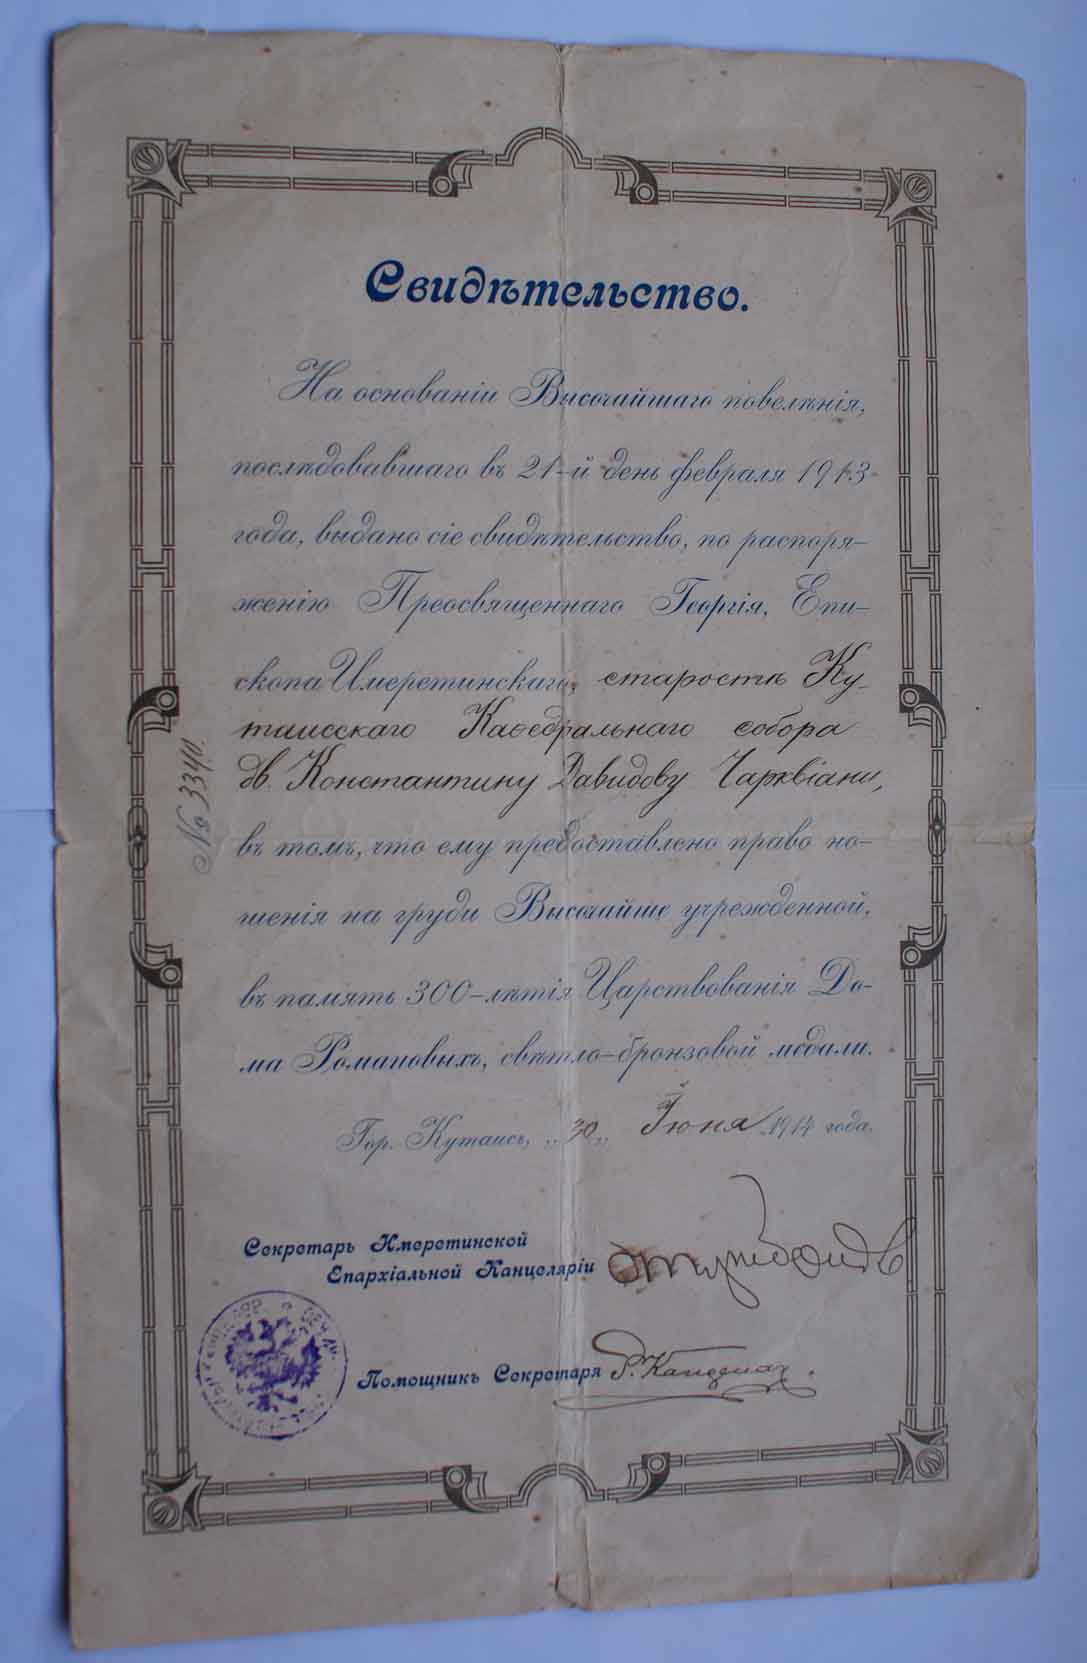 Свидѣтельство.
На основаніи Высочайшаго повелѣнія,
послѣдовавшаго въ 21-й день февраля 1913
года, выдано сіе свидѣтельство, по распоря-
женію Преосвященнаго Георгія, Епи-
скопа Имеретинскаго, старостѣ Ку-
таисскаго Каѳедральнаго собора
дв. Константину Давидову Чарквіани,
въ томъ, что ему предоставлено право но-
шенія на груди Высочайше учрежденной,
въ память 300-лѣтія Царствованія До-
ма Романовыхъ, свѣтло-бронзовой медали.
Гор. Кутаисъ, „30„ Іюня 1914 года.
№ 3340.
Секретарь Имеретинской
Епархіальной Канцеляріи
Помощникъ Секретаря